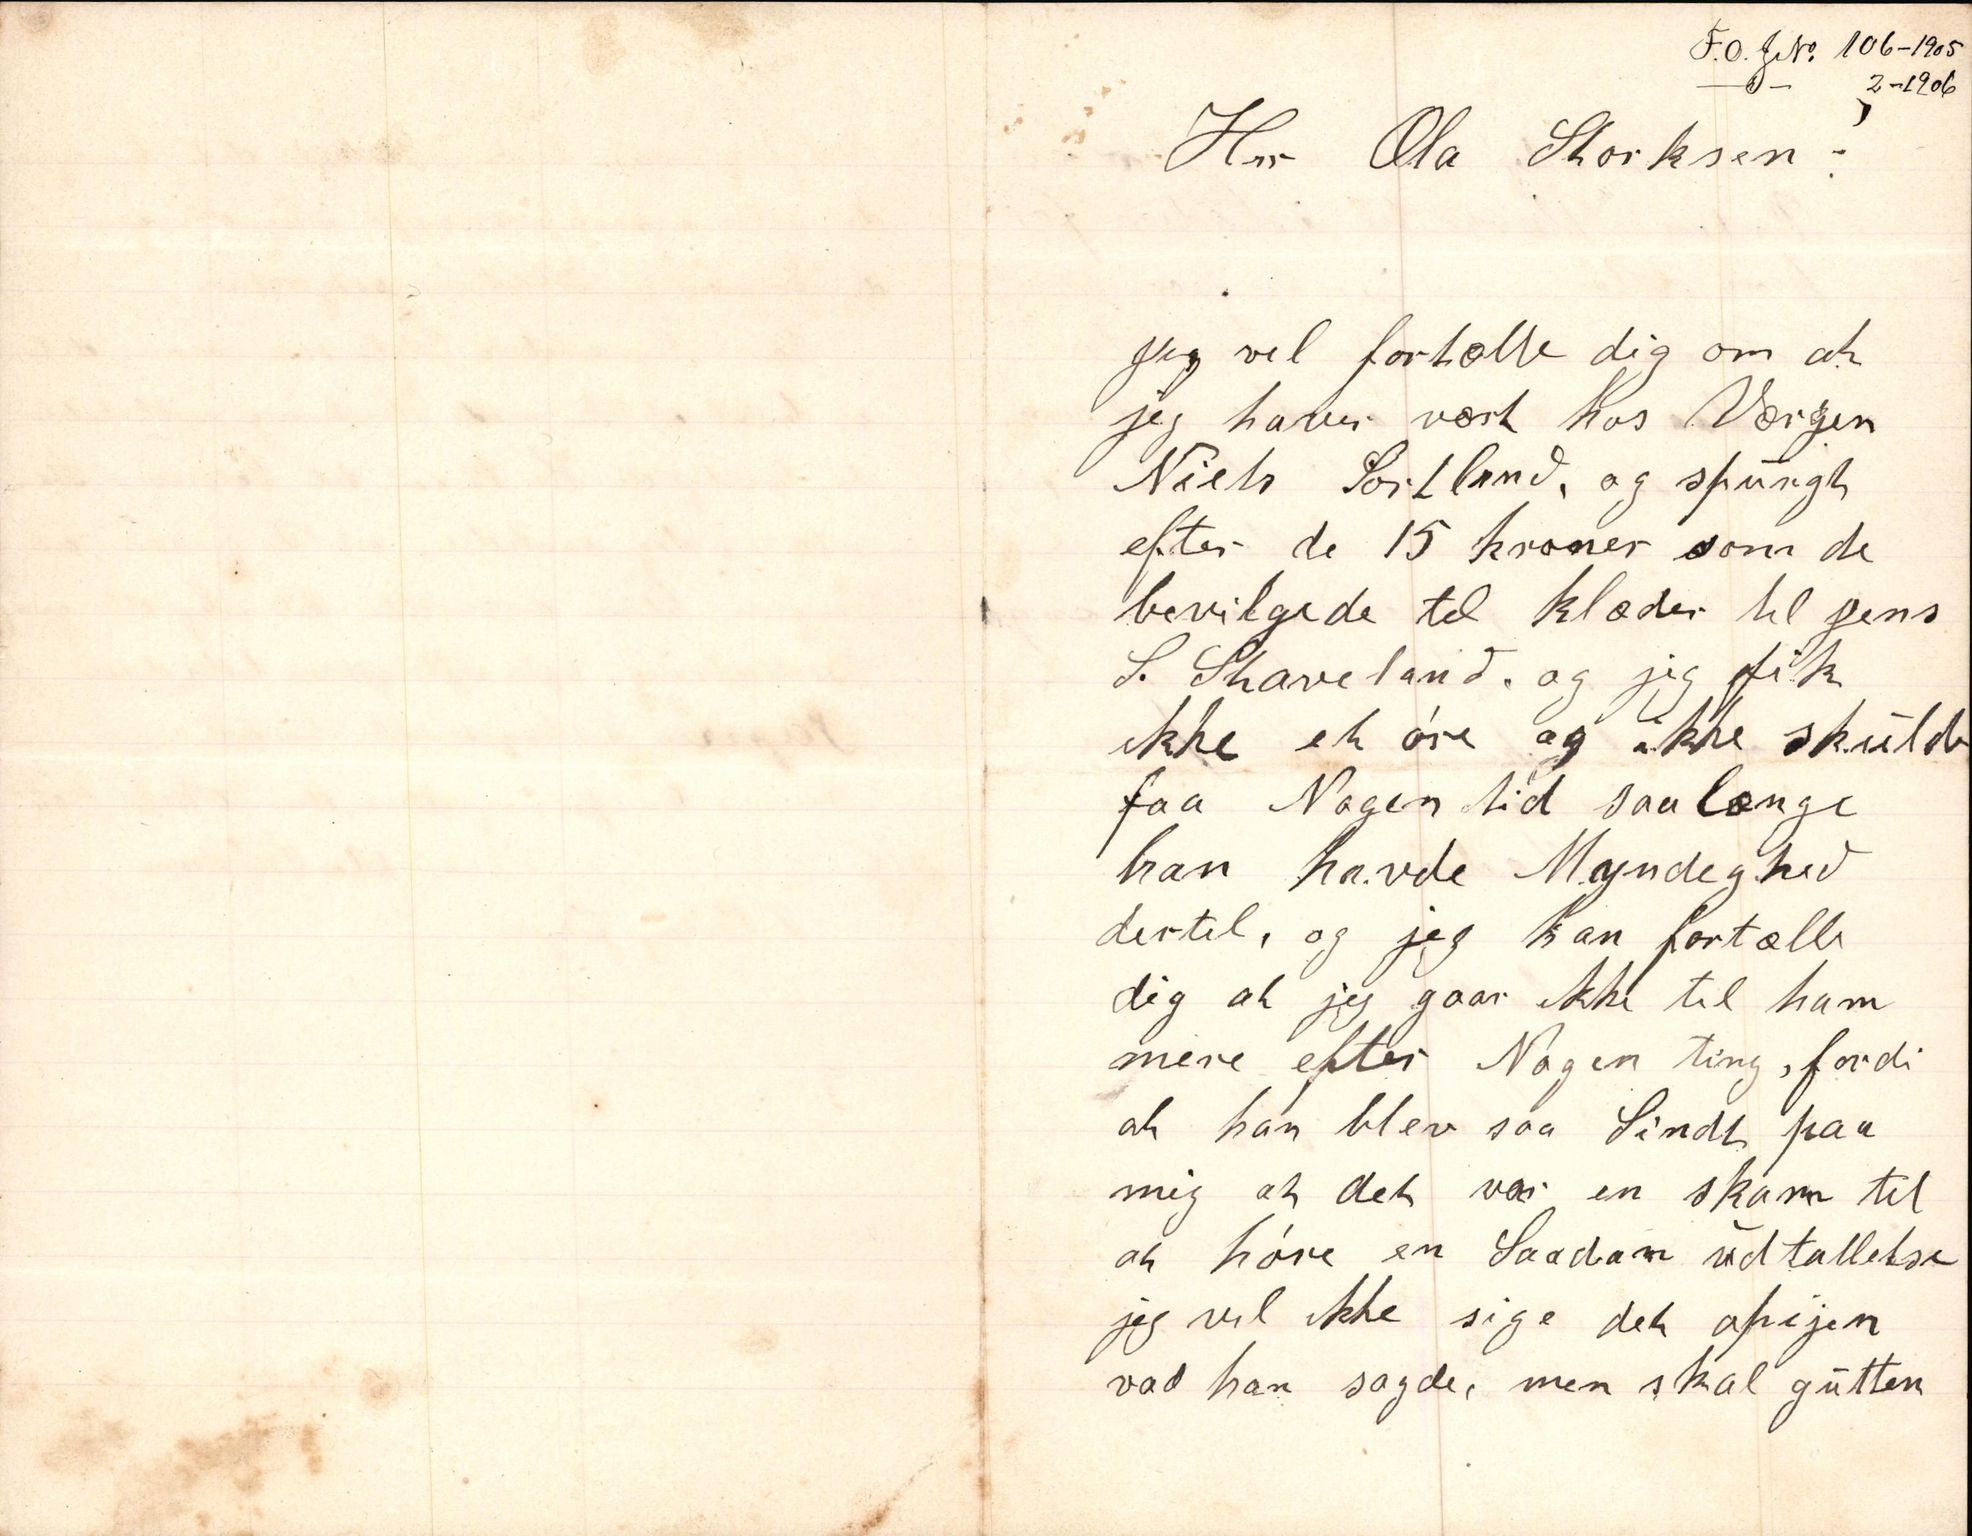 F.O. J.No. 106-1905
—"— 2-1906
Her Ola Storksen;
jeg vel fortælle dig om at
jeg haver vært hos Værgen
Niels Sortland, og spurgt
efter de 15 kroner som de
bevilgede tel klæder tel jens
S. Staveland. og jeg fik
ikke et øre og ikke skulde
faa Nogen tid saa længe
han havde Myndeghed
dertel, og jeg kan fortælle
dig at jeg gaar ikke tel ham
mere efter Nogen ting, fordi
at han blev saa Sindt paa
mig at det var en skam tel
at høre en Saadan udtallelse
jeg vel ikke sige det apijen
vad han sagde, men skal gutten